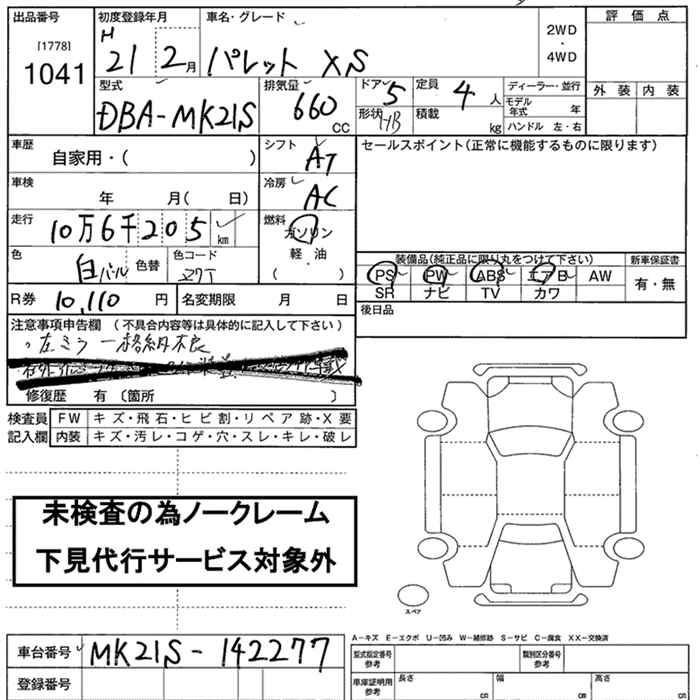 出品番号
[1778]
1041
初度登録年月
H
21 2月
車名・グレード
パレット XS
2WD
・
4WD
評価点
外装 内装
型式
DBA-MK21S
排気量
660
CC
ドア
5
形状
HB
定員
4
人
積載
kg
ディーラー・並行
モデル年式
年
ハンドル 左・右
車歴
自家用・( )
シフト
AT
セールスポイント(正常に機能するものに限ります)
車検
年 月( 日)
冷房
AC
走行
10万6千205
km
燃料
ガソリン
軽・油
( )
色
白パール
色替
色コード
装備品(純正品に限り丸をつけて下さい)
新車保証書
PS PW ABS エアB AW
有・無
SR ナビ TV カワ
R券 10,110 円
名変期限 月 日
後日品
注意事項申告欄 (不具合内容等は具体的に記入して下さい)
・左ミラー格納不良
修復歴 有〔箇所 〕
検査員 FW キズ・飛石・ヒビ割・リペア跡・X要
記入欄 内装 キズ・汚レ・コゲ・穴・スレ・キレ・破レ
未検査の為ノークレーム
下見代行サービス対象外
スペア
A-キズ E-エクボ U-凹み W-補修跡 S-サビ C-腐食 XX-交換済
車台番号 MK21S-142277
登録番号
型式指定番号
参考
類別区分番号
参考
車庫証明用
参考
長さ
cm
幅
cm
高さ
cm